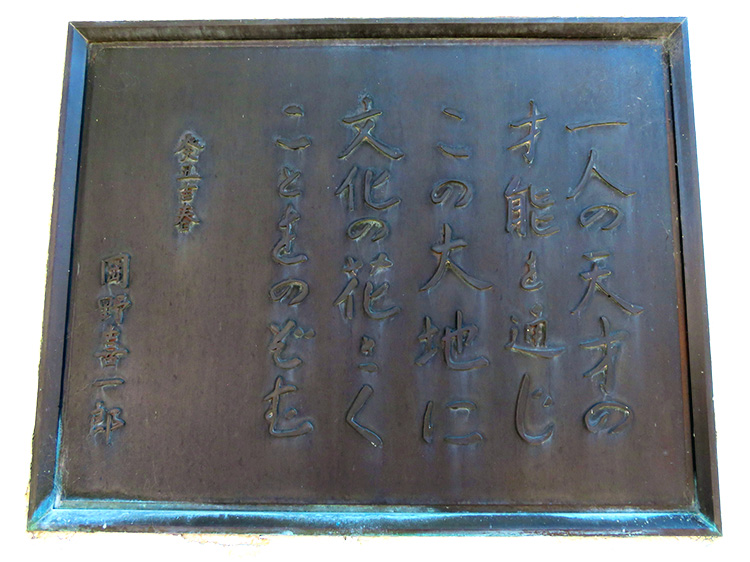 一人の天才の
才能を通じ
この大地に
文化の花さく
ことをのぞむ
癸丑吉春
岡野喜一郎